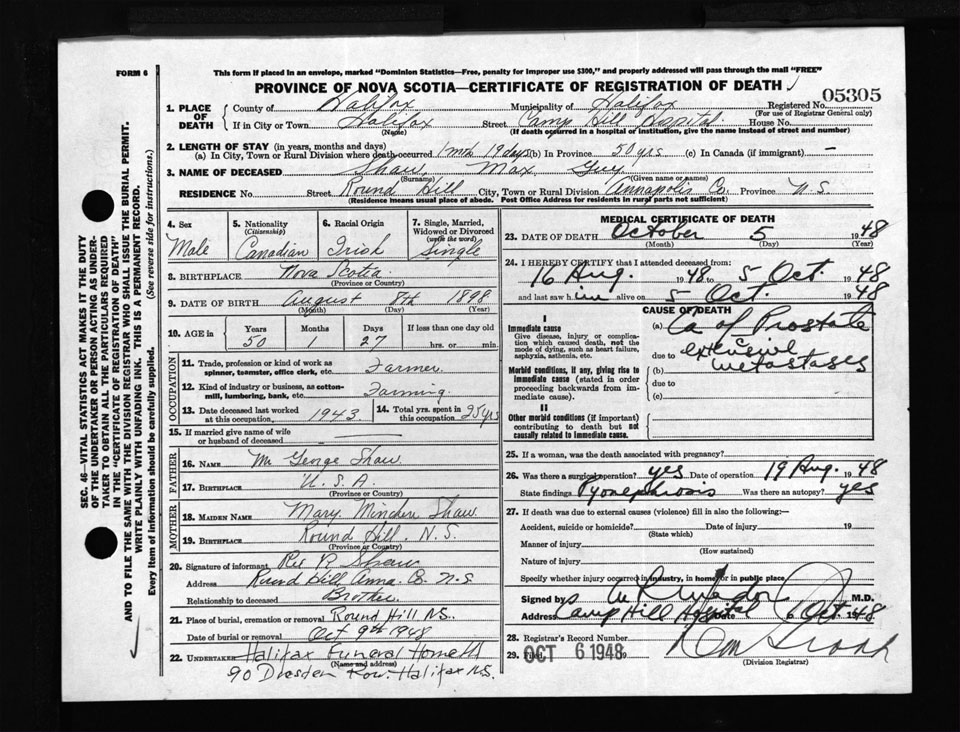 FORM 6
This form if placed in an envelope, marked "Dominion Statistics—Free, penalty for improper use $300," and properly addressed will pass through the mail "FREE"
PROVINCE OF NOVA SCOTIA—CERTIFICATE OF REGISTRATION OF DEATH
05305
1. PLACE OF DEATH
County of Halifax Municipality of Halifax Registered No.
(For use of Registrar General only)
If in City or Town Halifax Street Camp Hill Hospital House No.
(Name) (If death occurred in a hospital or institution, give the name instead of street and number)
2. LENGTH OF STAY (in years, months and days)
(a) In City, Town or Rural Division where death occurred 1 mth 19 days (b) In Province 50 yrs (c) In Canada (if immigrant) —
3. NAME OF DECEASED Shaw, Max Guy
(Surname) (Given name or names)
RESIDENCE No. Street Round Hill City, Town or Rural Division Annapolis Co. Province N.S.
(Residence means usual place of abode. Post Office Address for residents in rural parts not sufficient)
4. Sex
Male
5. Nationality
(Citizenship)
Canadian
6. Racial Origin
Irish
7. Single, Married, Widowed or Divorced
(write the word)
Single
8. BIRTHPLACE Nova Scotia
(Province or Country)
9. DATE OF BIRTH August 8th 1898
(Month) (Day) (Year)
10. AGE in
Years Months Days If less than one day old
50 1 27 hrs. or min.
OCCUPATION
11. Trade, profession or kind of work as spinner, teamster, office clerk, etc. Farmer
12. Kind of industry or business, as cotton-mill, lumbering, bank, etc. Farming
13. Date deceased last worked at this occupation. 1943
14. Total yrs. spent in this occupation 25 yrs
15. If married give name of wife or husband of deceased
FATHER
16. NAME Mr George Shaw
17. BIRTHPLACE U.S.A.
(Province or Country)
MOTHER
18. MAIDEN NAME Mary Shaw
19. BIRTHPLACE Round Hill. N.S.
(Province or Country)
20. Signature of informant R Shaw
Address Round Hill Anna. Co. N.S
Relationship to deceased Brother
21. Place of burial, cremation or removal Round Hill N.S.
Date of burial or removal Oct 9th 1948
22. UNDERTAKER Halifax Funeral Home
(Name and address)
90 Dresden Row. Halifax N.S.
MEDICAL CERTIFICATE OF DEATH
23. DATE OF DEATH October 5 1948
(Month) (Day) (Year)
24. I HEREBY CERTIFY that I attended deceased from:
16 Aug. 1948 to 5 Oct. 1948
and last saw him alive on 5 Oct. 1948
CAUSE OF DEATH
I
Immediate cause
Give disease, injury or complication which caused death, not the mode of dying, such as heart failure, asphyxia, asthenia, etc.
(a) Ca of Prostate
due to c extensive
Morbid conditions, if any, giving rise to immediate cause (stated in order proceeding backwards from immediate cause).
(b) metastases
due to
(c)
II
Other morbid conditions (if important) contributing to death but not causally related to immediate cause.
25. If a woman, was the death associated with pregnancy?
26. Was there a surgical operation? yes Date of operation 19 Aug. 1948
State findings Pyonephrosis Was there an autopsy? yes
27. If death was due to external causes (violence) fill in also the following:—
Accident, suicide or homicide? Date of injury 19
(State which)
Manner of injury
(How sustained)
Nature of injury
Specify whether injury occurred in industry, in home or in public place
Signed by M.D.
Address Camp Hill Hospital Date 6 Oct. 1948
28. Registrar's Record Number
29. Filed OCT 6 1948
(Division Registrar)
SEC. 46—VITAL STATISTICS ACT MAKES IT THE DUTY OF THE UNDERTAKER OR PERSON ACTING AS UNDERTAKER TO OBTAIN ALL THE PARTICULARS REQUIRED IN THE "CERTIFICATE OF REGISTRATION OF DEATH" AND TO FILE THE SAME WITH THE DIVISION REGISTRAR WHO SHALL ISSUE THE BURIAL PERMIT.
WRITE PLAINLY WITH UNFADING INK. THIS IS A PERMANENT RECORD.
Every item of information should be carefully supplied. (See reverse side for instructions.)